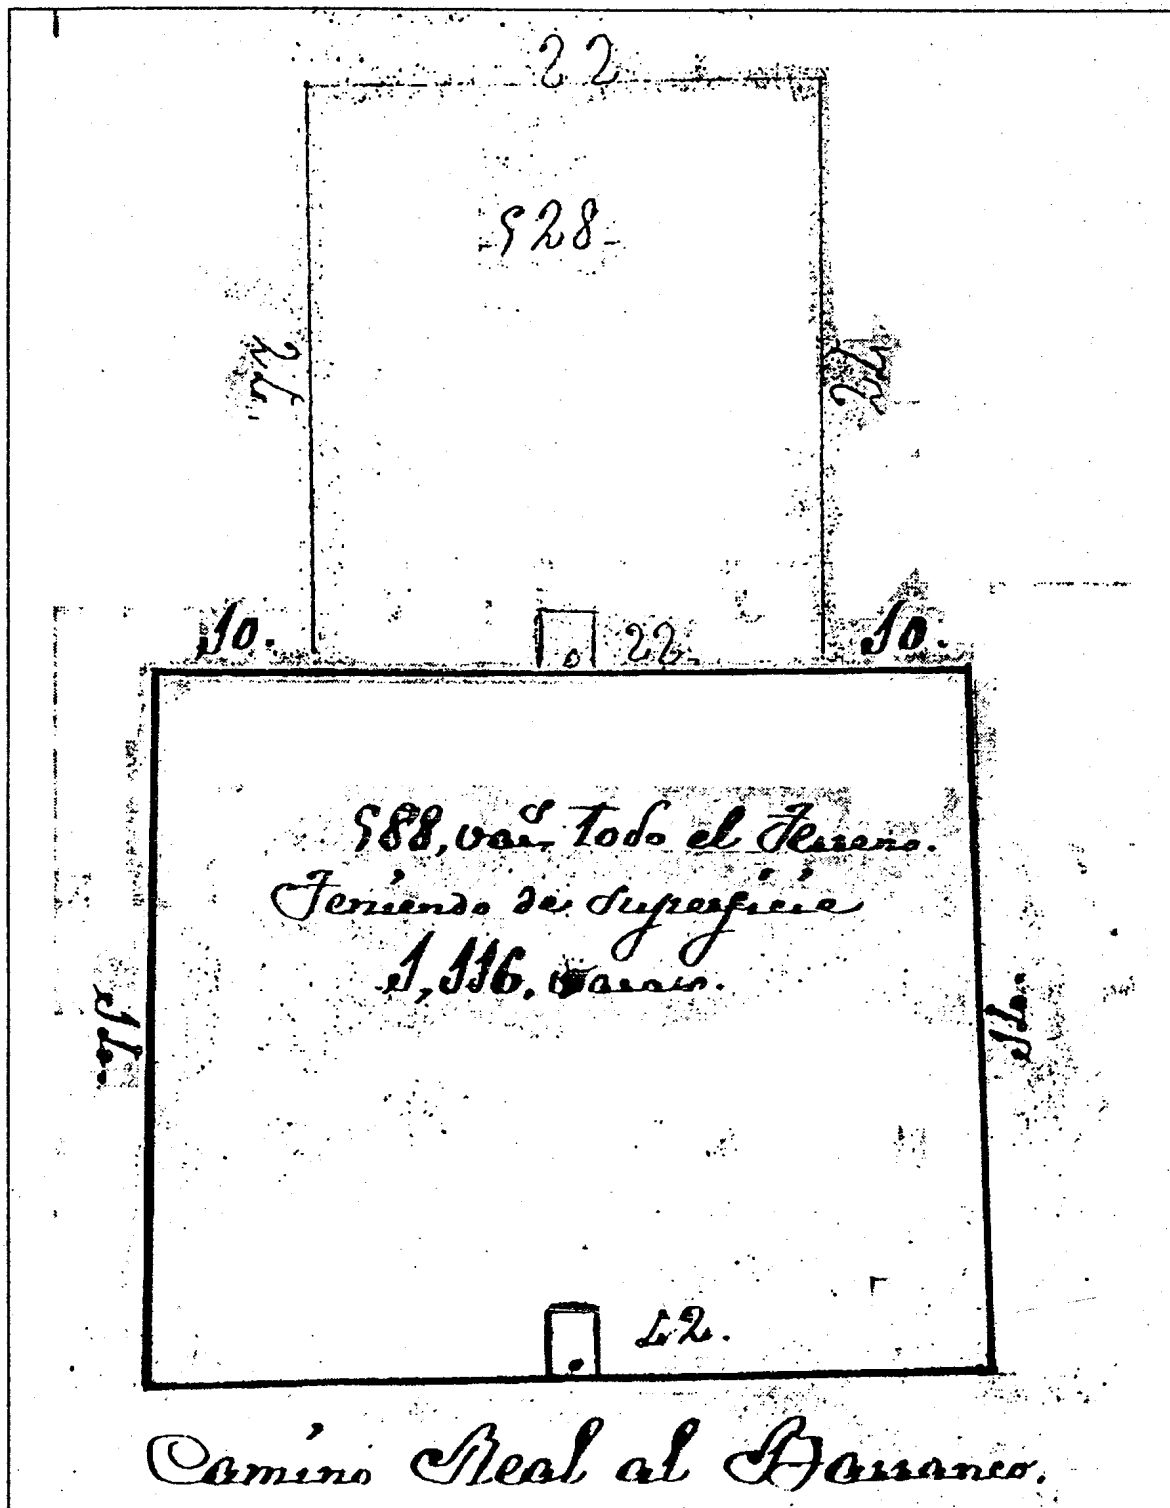 22
528
24.
24
10.
22.
10.
588, vas. Todo el Terreno.
Teniendo de superficie
1,116. varas.
14.
14.
42.
Camino Real al Barranco.